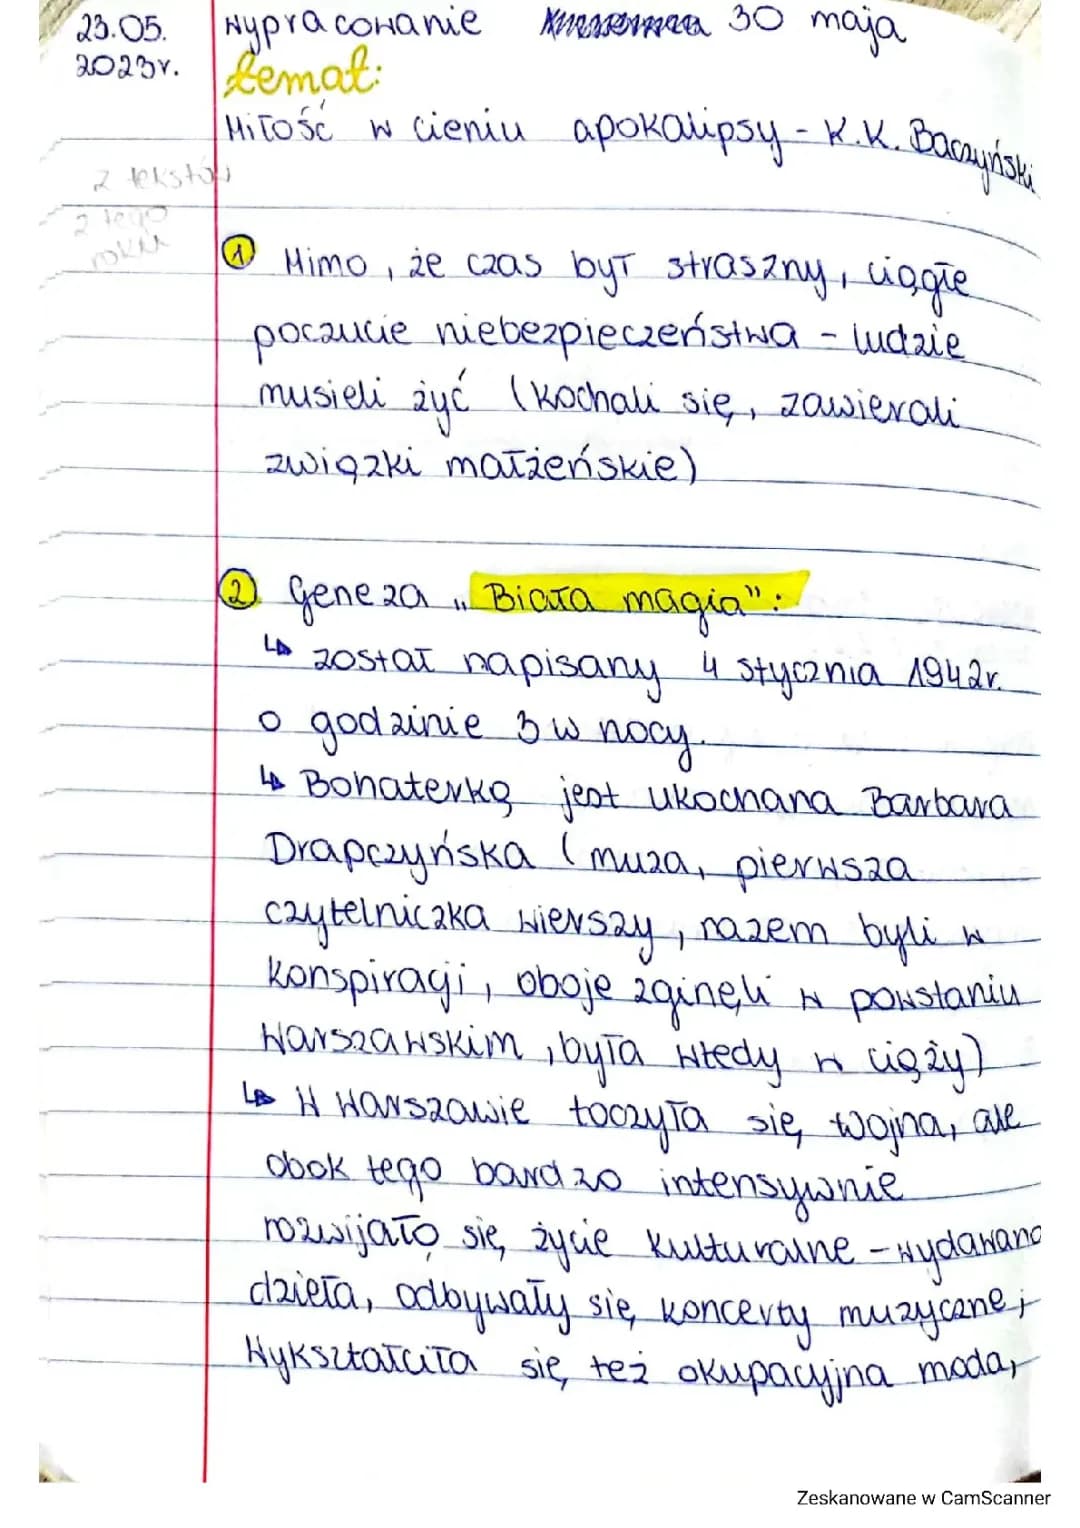 23.05. Wypracowanie 30 maja
2023r. temat:
Miłość w cieniu apokalipsy - K.K. Baczyński
z tekstów
z tego
roku
1 Mimo, że czas był straszny, ciągłe
poczucie niebezpieczeństwa - ludzie
musieli żyć (kochali się, zawierali
związki małżeńskie)
2 Geneza „Biała magia":
↳ został napisany 4 stycznia 1942r.
o godzinie 3 w nocy.
↳ Bohaterką jest ukochana Barbara
Drapczyńska (muza, pierwsza
czytelniczka wierszy, razem byli w
konspiracji, oboje zginęli w powstaniu
Warszawskim, była wtedy w ciąży)
↳ W Warszawie toczyła się wojna, ale
obok tego bardzo intensywnie
rozwijało się życie kulturalne - wydawano
dzieła, odbywały się koncerty muzyczne;
Wykształciła się też okupacyjna moda,
Zeskanowane w CamScanner